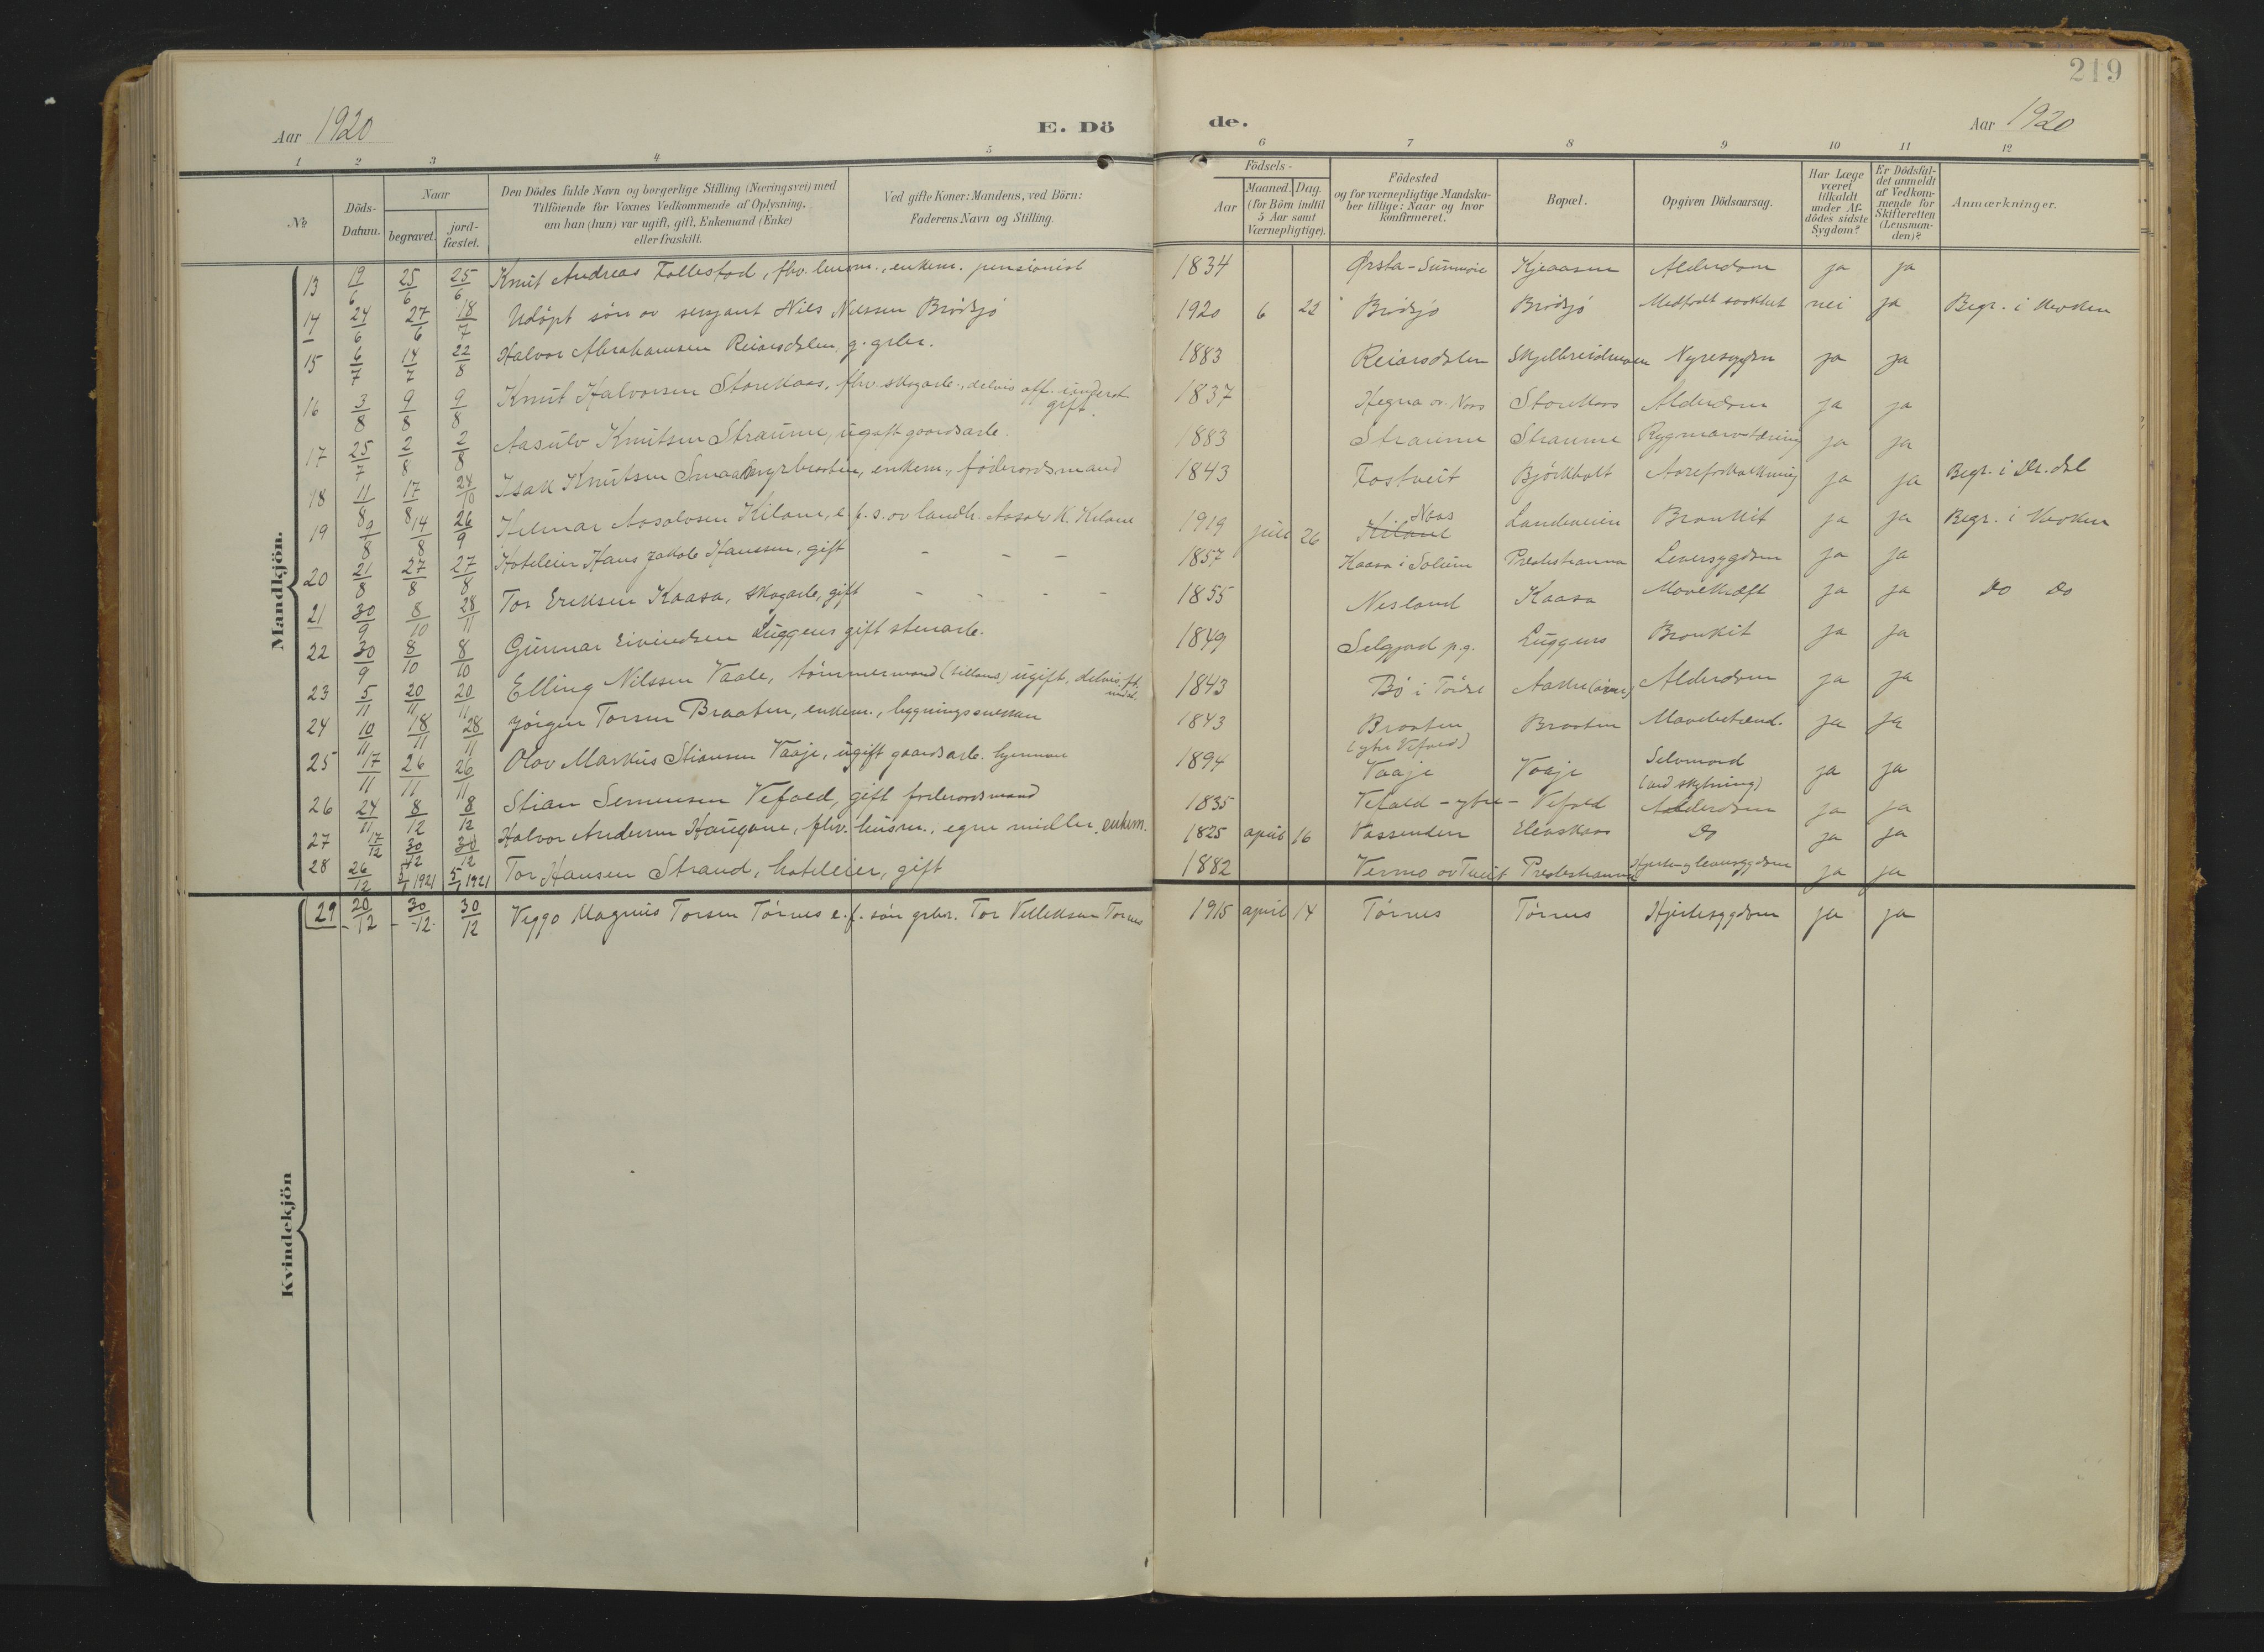 219
Aar 1920
E. Dö
de.
Aar 1920
1 2 3 4 5 6 7 8 9 10 11 12
№
Döds-Datum.
Naar
begravet.
jord-fæstet.
Den Dödes fulde Navn og borgerlige Stilling (Næringsvei) med
Tilföiende for Voxnes Vedkommende af Oplysning,
om han (hun) var ugift, gift, Enkemand (Enke)
eller fraskilt.
Ved gifte Koner: Mandens, ved Börn:
Faderens Navn og Stilling.
Födsels-
Aar
Maaned. Dag.
(for Börn indtil
5 Aar samt
Værnepligtige).
Födested
og for værnepligtige Mandska-
ber tillige: Naar og hvor
konfirmeret.
Bopæl.
Opgiven Dödsaarsag.
Har Læge
været
tilkaldt
under Af-
dödes sidste
Sygdom?
Er Dödsfal-
det anmeldt
af Vedkom-
mende for
Skifteretten
(Lensman-
den)?
Anmærkninger.
Mandkjön.
13 19/6 25/6 25/6 Knut Andreas Follestad, fhv. lensm., enkem. pensionist 1834 Ørsta - Sunmøre Kjeaasen Alderdom ja ja
14 24/6 27/6 18/7 Udöpt sön av sersjant Nils Nilssen Brödsjö 1920 6 22 Brödsjö Brödsjö Medfödt svakhet nei ja Begr. i
15 6/7 14/7 22/8 Halvor Abrahamsen Reiarsdalen, g. grbr. 1883 Reiarsdalen Skjelbreidmoen Nyresygdom ja ja
16 3/8 9/8 9/8 Knut Halvorsen Storekaas, fhv. skogarb., delvis off. underst. gift. 1837 Hegna ov. Noos Storekaas Alderdom ja ja
17 25/7 2/8 2/8 Aasulv Knutsen Straume, ugift gaardsarb. 1883 Straume Straume Rygmarvstæring ja ja
18 11/8 17/8 24/10 Isak Knutsen Smaamyrbraaten, enkem., föderaadsmand 1843 Fostveit Björkholt Aareforkalkning ja ja Begr. i Dr.dal
19 9/8 14/8 26/9 Hilmar Aasolvsen Kilane, e. f. s. av landh. Aasolv K. Kilane 1919 juli 26 Kilane Noos Landeveien Bronkit ja ja Begr. i
20 21/8 27/8 27/8 Hoteleier Hans Jakob Hanssen, gift - - - 1857 Kaasa i Solum Prestestranna Leversygdom ja ja
21 30/9 8/10 28/11 Tor Eriksen Kaasa, skogarb, gift - - - - 1855 Nesland Kaasa Mavekræft ja ja Do Do
22 30/9 8/10 8/10 Gunnar Eivindsen Luggens gift stenarb. 1849 Selgjord p.g. Luggens Bronkit ja ja
23 5/11 20/11 20/11 Elling Nilssen Vaale, tömmermand (tillans) ugift, delvis ft. underst. 1843 Bö i Törde Aakre (övre) Alderdom ja ja
24 10/11 18/11 28/11 Jörgen Torsen Braaten, enkem., bygningssnekker 1843 Braaten (ytre Vefald) Braaten Mavebetænd. ja ja
25 17/11 26/11 26/11 Olav Markus Stiansen Vaaje, ugift gaardsarb. hjemme 1894 Vaaje Vaaje Selvmord (ved skytning) ja ja
26 24/11 8/12 8/12 Stian Semensen Vefald, gift föderaadsmand 1835 Vefald - ytre - Vefald Alderdom ja ja
27 17/12 30/12 30/12 Halvor Andersen Haugane, fhv. husm., egne midler. enkem. 1825 april 16 Vassenden Eleaskaas Do ja ja
28 26/12 5/1 1921 5/1 1921 Tor Hansen Strand, hoteleier, gift 1882 Vermo ov Tveit Prestestranna Hjerte og leversygdom ja ja
29 20/12 30/12 30/12 Viggo Magnus Torsen Törnes e. f. sön grbr. Tor Vetleksen Tornes 1915 april 14 Törnes Törnes Hjertesygdom ja ja
Kvindekjön